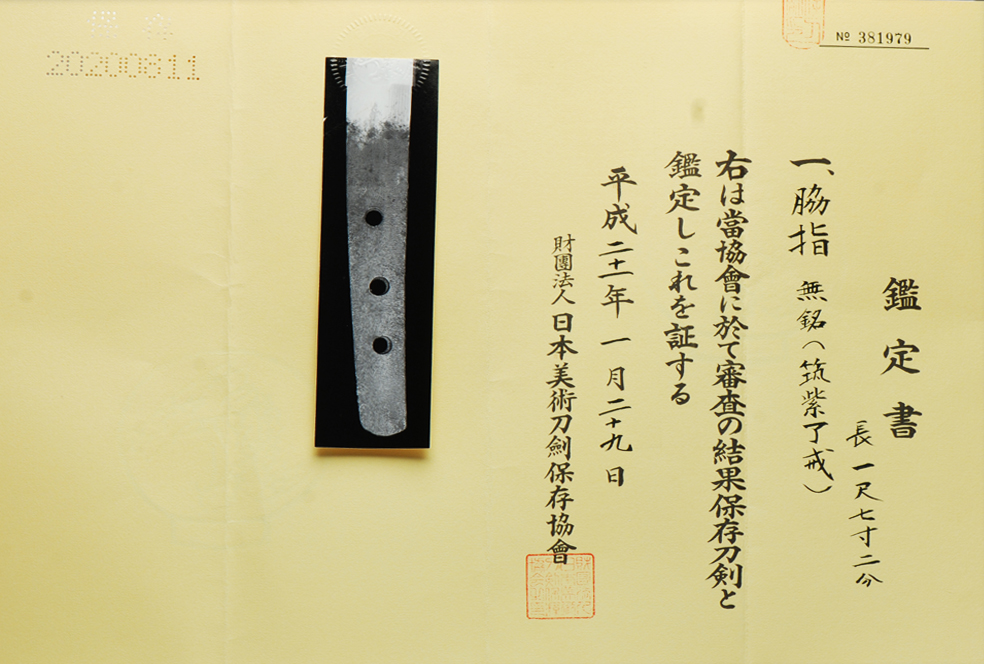 № 381979
鑑定書
長一尺七寸二分
一、脇指 無銘(筑紫了戒)
右は當協會に於て審査の結果保存刀剣と
鑑定しこれを証する
平成二十一年一月二十九日
財團法人日本美術刀劍保存協會
20200811